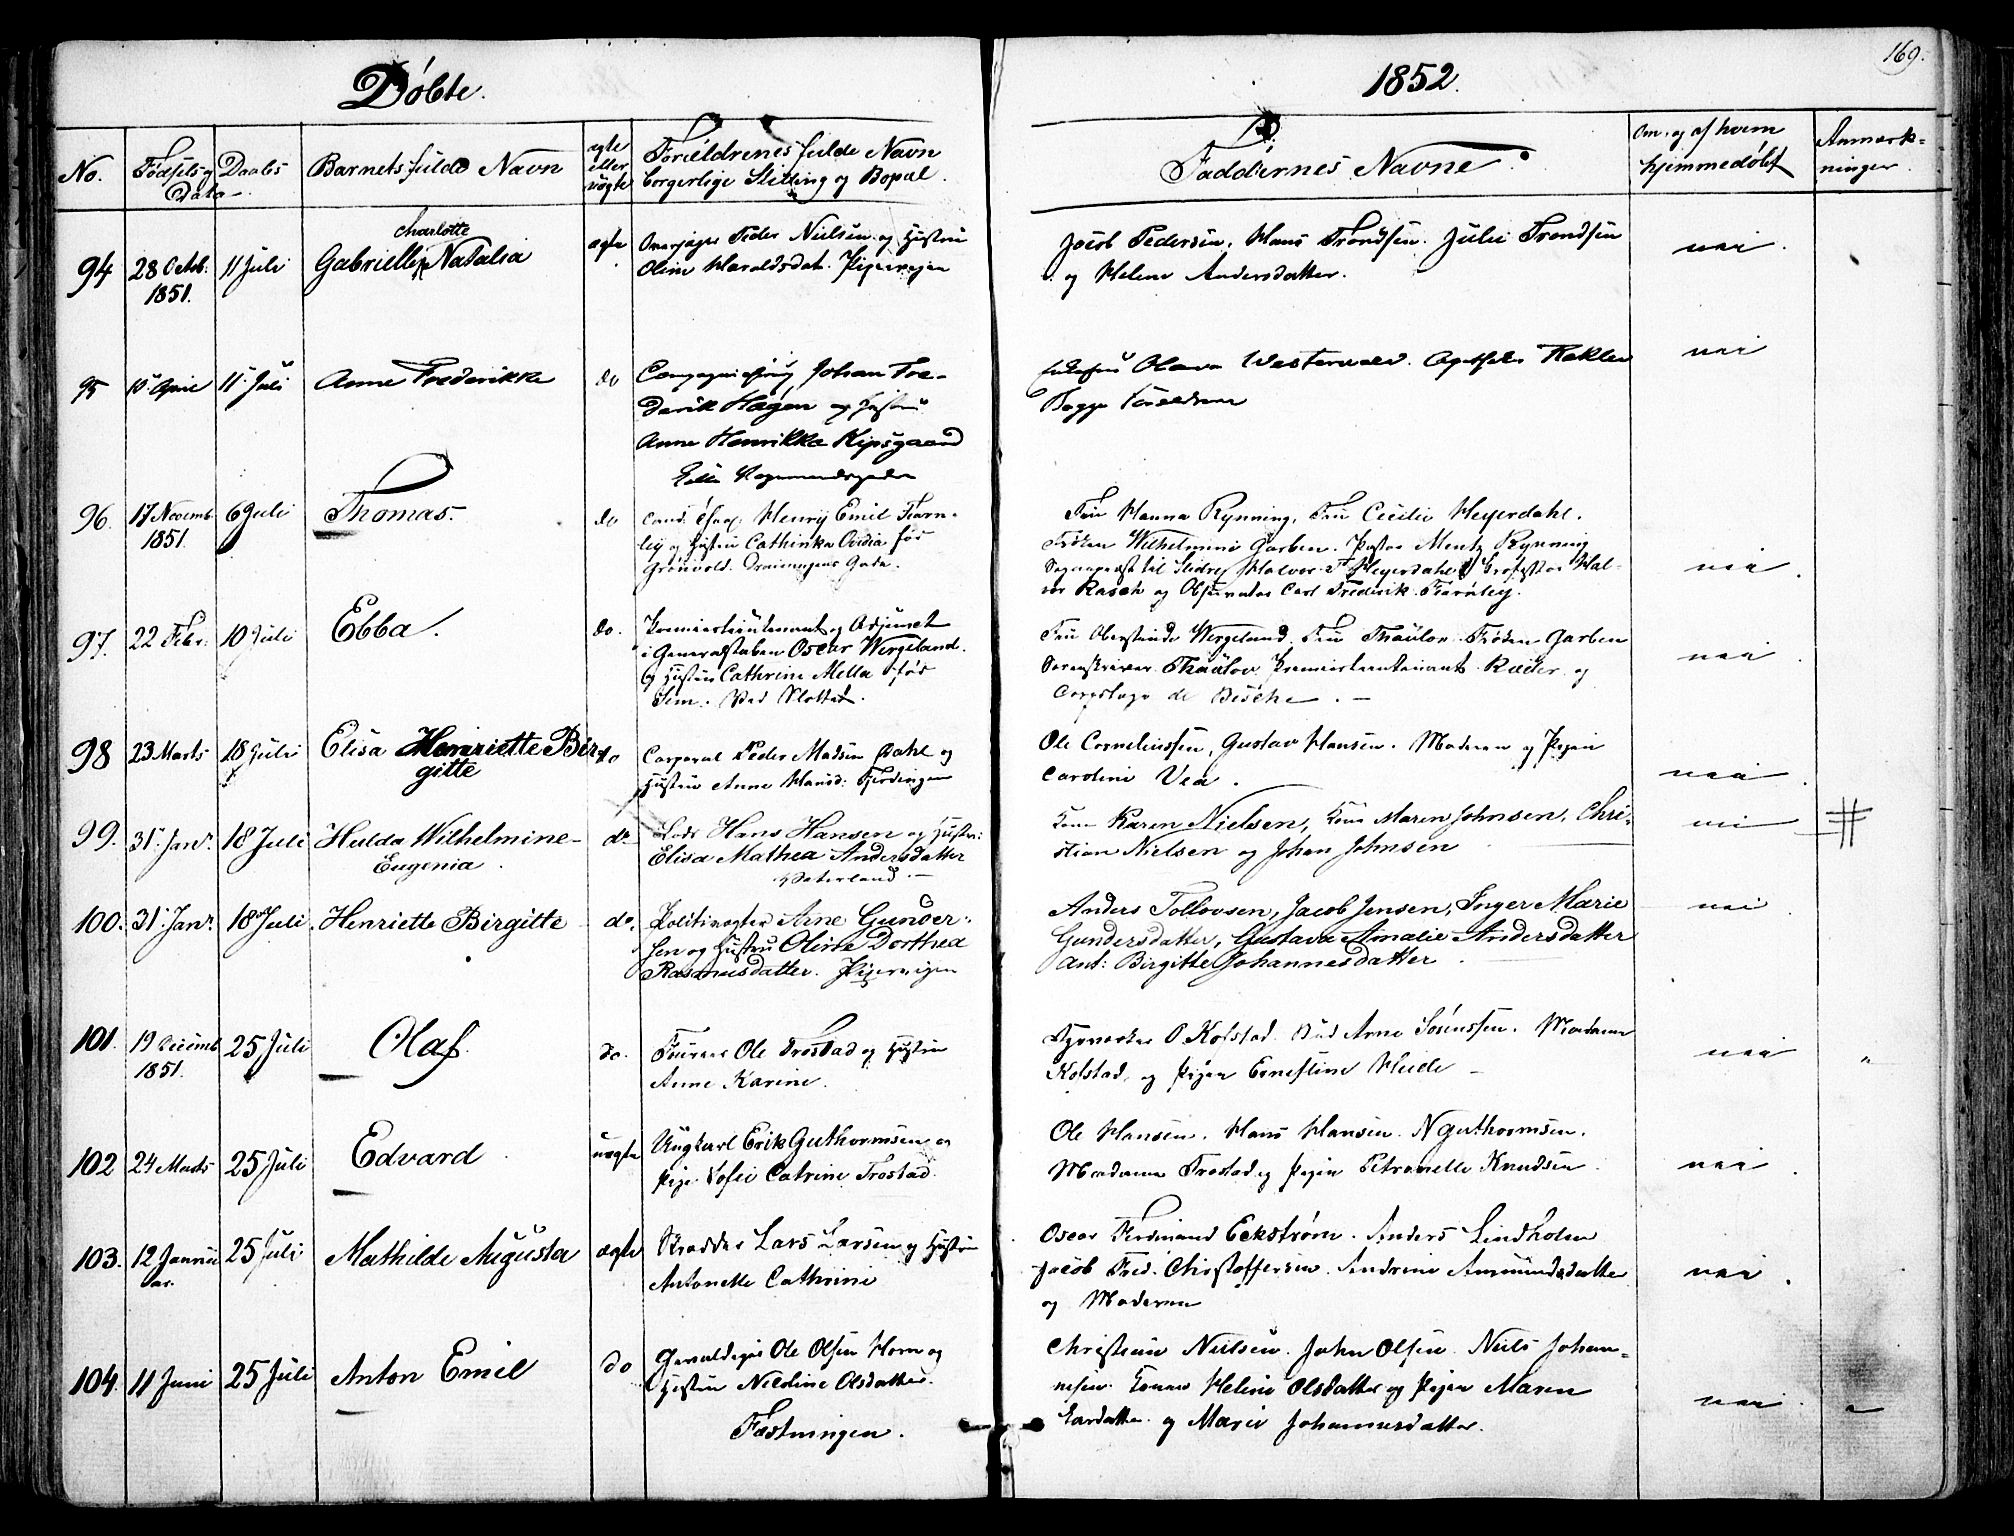 169.
Døbte.
1852.
No.
Fødsels og
Daabs
Data
Barnets fulde Navn
ægte
eller
uægte
Forældrenes fulde Navn
borgerlige Stilling og Bopæl.
Faddernes Navne.
Om, og af hvem
hjemmedøbt
Anmærk-
ninger.
94
28 Octob.
1851.
11 Juli
Charlotte
Gabrielle Natalia
ægte
Peder Nielsen og Hustru
Oline Haraldsdat. Pipervigen
Jacob Pedersen, Hans Trondsen. Julie Trondsen
og Helene Andersdatter.
nei.
95
11 Juli
Anne Frederikke
do
Johan Fre-
derik Hagen og Hustru
Anne Henrikka Kipsgaard
Olava
Begge Forældrene
nei
96.
17 Novemb.
1851.
6 Juli
Thomas.
do
Cand. Henry Emil Fearn-
ley og Hustru Cathinka Ovidia før
Grønvold. Dronningens Gade.
Fru Hanna Rynning, Fru Cecilie Heyerdahl.
Frøken Wilhelmine Garben. Pastor Mentz Rynning
Sognepræst til Slidre, Halvor Heyerdahl Professor Hal-
vor Rasch og Observator Carl Frederik Fearnley.
nei.
97.
22 Febr.
10 Juli
Ebba.
do.
Premierlieutenant og Adjunct
i Generalstaben Oscar Wergeland.
og Hustru Cathrine Mella før
Ved Slottet.
Fru Oberstinde Wergeland. Fru Thaulow Frøken Garben
Sorenskriver Thaulow Premierlieutenant Ræder og
Corpslæge de Besche. -
nei.
98
23 Marts
18 Juli
Elisa Henriette Bir-
gitte
do
Corporal Peder Madsen Dahl og
Hustru Anne Hansd: Fjerdingen
Ole Corneliussen, Gustav Hansen. Moderen og Pigen
Caroline Vea.
nei.
99.
31 Janr.
18 Juli
Hulda Wilhelmine-
Eugenia.
do
Hans Hansen og Hustru:
Elisa Mathea Andersdatter
Vaterland. -
Kone Karen Nielsen, Kone Maren Johnsen, Chri-
stian Nielsen og Johan Johnsen
nei
#
100.
31 Janr.
18 Juli.
Henriette Birgitte
do.
Politivægter Arne Gunder-
sen og Hustru Olivia Dorthea
Rasmusdatter. Pipervigen
Anders Tollovsen, Jacob Jensen, Inger Marie
Gundersdatter, Gustava Amalie Andersdatter
Ant: Birgitte Johannesdatter.
nei.
101.
19 Decemb.
1851.
25 Juli
Olaf.
do.
Fourer Ole Trostad og Hustru
Anne Karine.
O. Kolstad. Arne Sørenssen. Madame
Kolstad. og Pigen Ernestine Heide -
nei
"
102
24 Marts
25 Juli
Edvard.
uægte
Ungkarl Erik Guthormsen og
Pige Sofie Catrine Trostad.
Ole Hansen. Hans Hansen. N Guthormsen.
Madame Trostad og Pigen Petronelle Knudsen.
nei.
103.
12 Janu-
ar.
25 Juli
Mathilde Augusta
ægte
Skrædder Lars Larsen og Hustru
Antonette Cathrine
Oscar Ferdinand Eckstrøm. Anders Lindholm
Jacob Fred. Christoffersen. Andrine Amundsdatter
og Moderen
nei.
104.
11 Juni
25 Juli
Anton Emil
do
Ole Olsen Horn og
Hustru Nicoline Olsdatter.
Fæstningen.
Christian Nielsen. John Olsen. Niels Johan-
nesen. Konen Helene Olsdatter og Pigen Maren
Larsdatter. og Marie Johannesdatter.
nei.
"